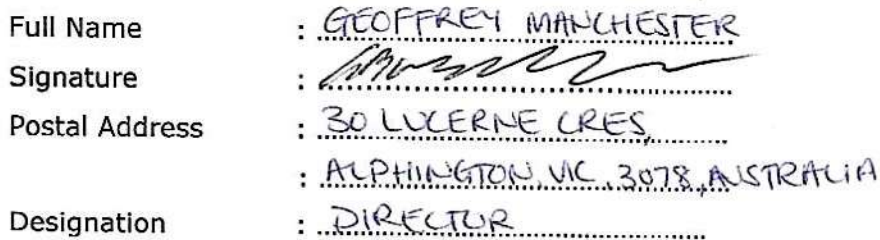 Full Name : GEOFFREY MANCHESTER
Signature :
Postal Address : 30 LUCERNE CRES,
: ALPHINGTON, VIC, 3078, AUSTRALIA
Designation : DIRECTOR